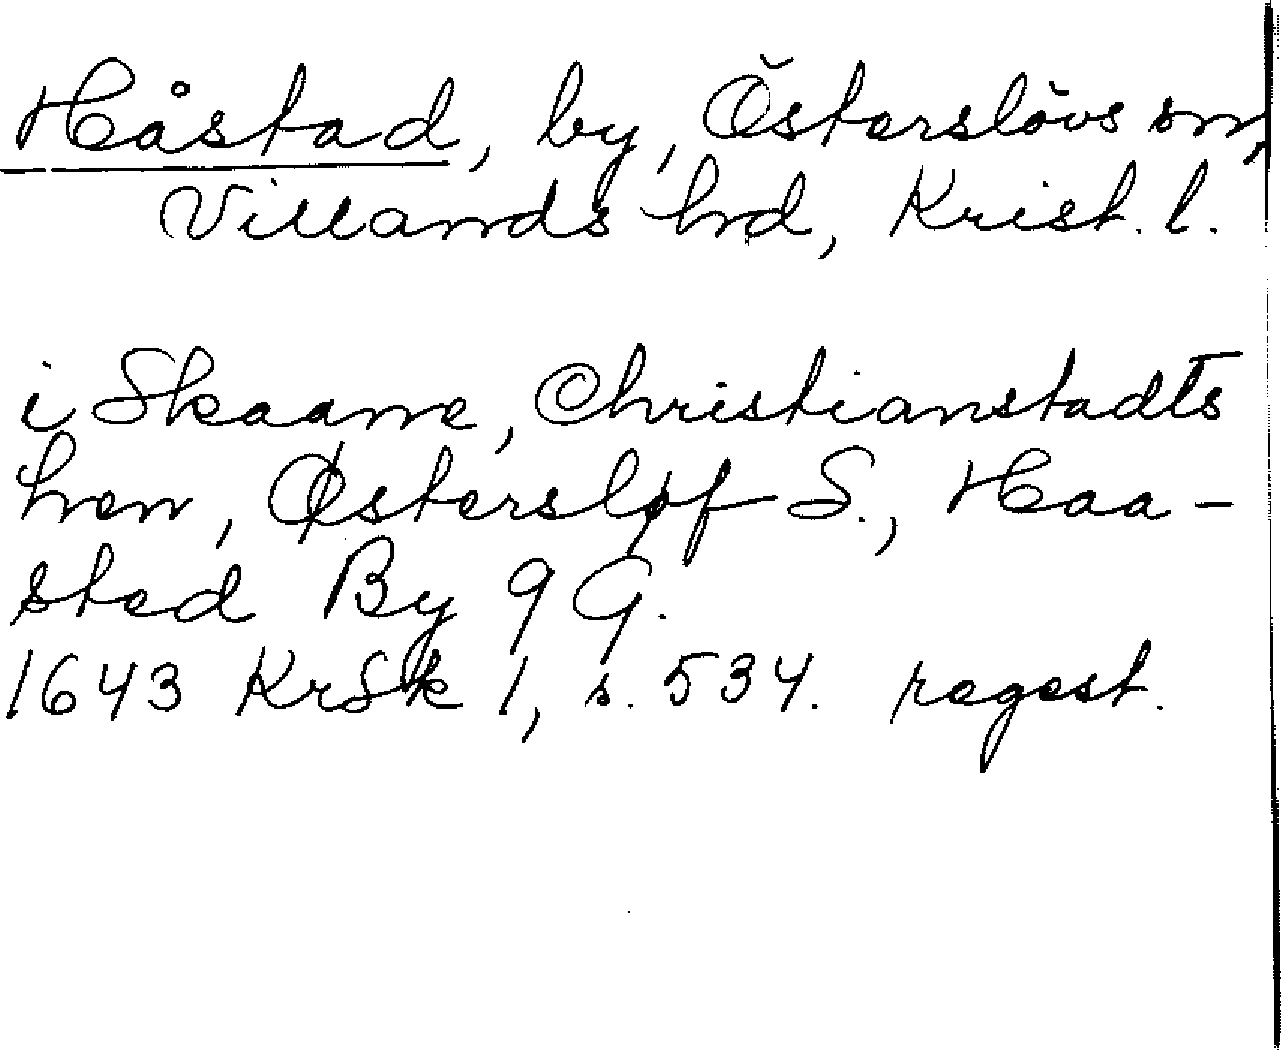 Håstad, by, Österslövs sn,
Villands hd, Krist. l.
i Skaane, Christianstadts
hren, Østersløf S., Haa-
sted By 9 G.
1643 KrSk 1, s. 534. regest.